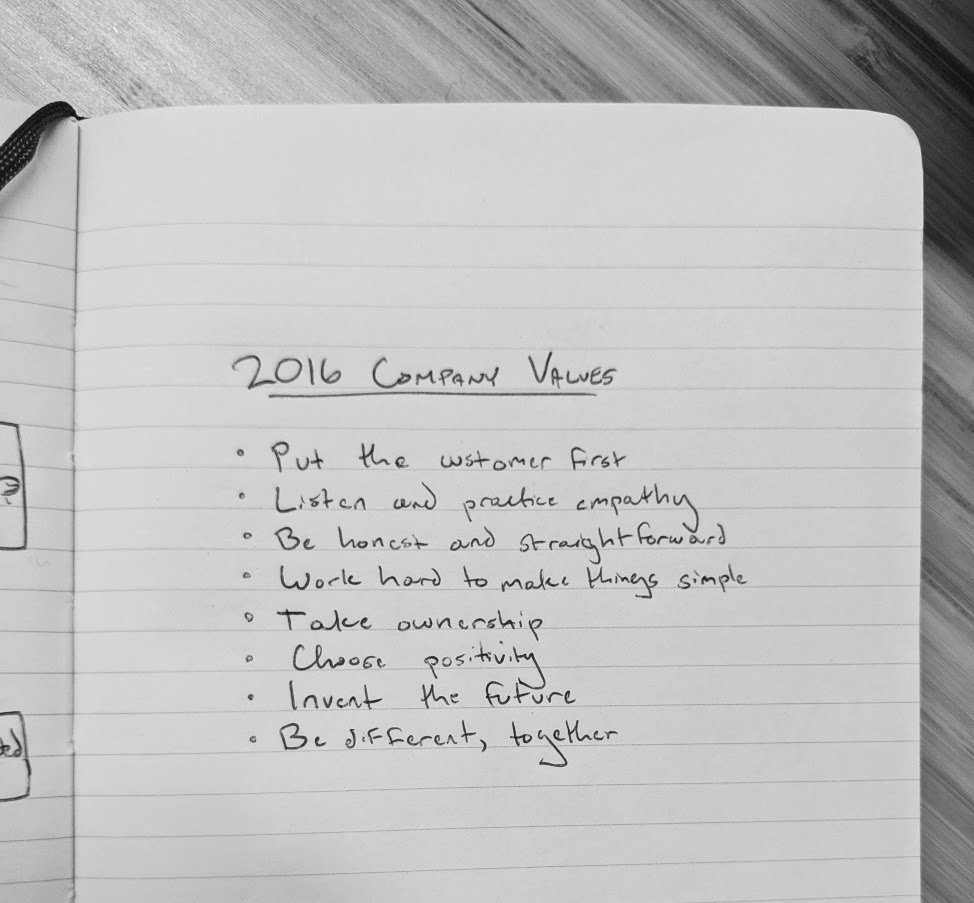 2016 COMPANY VALUES
• Put the customer first
• Listen and practice empathy
• Be honest and straightforward
• Work hard to make things simple
• Take ownership
• Choose positivity
• Invent the future
• Be different, together